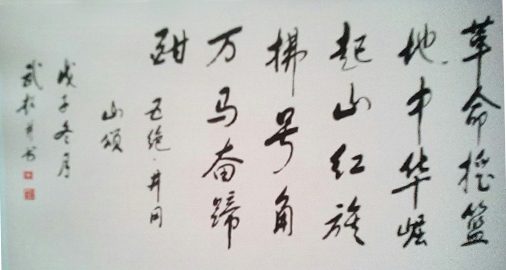 革命摇篮
地中华崛
起山红旗
拂号角
万马奋蹄
酣
五绝·井冈
山颂
戊子冬月
武 书